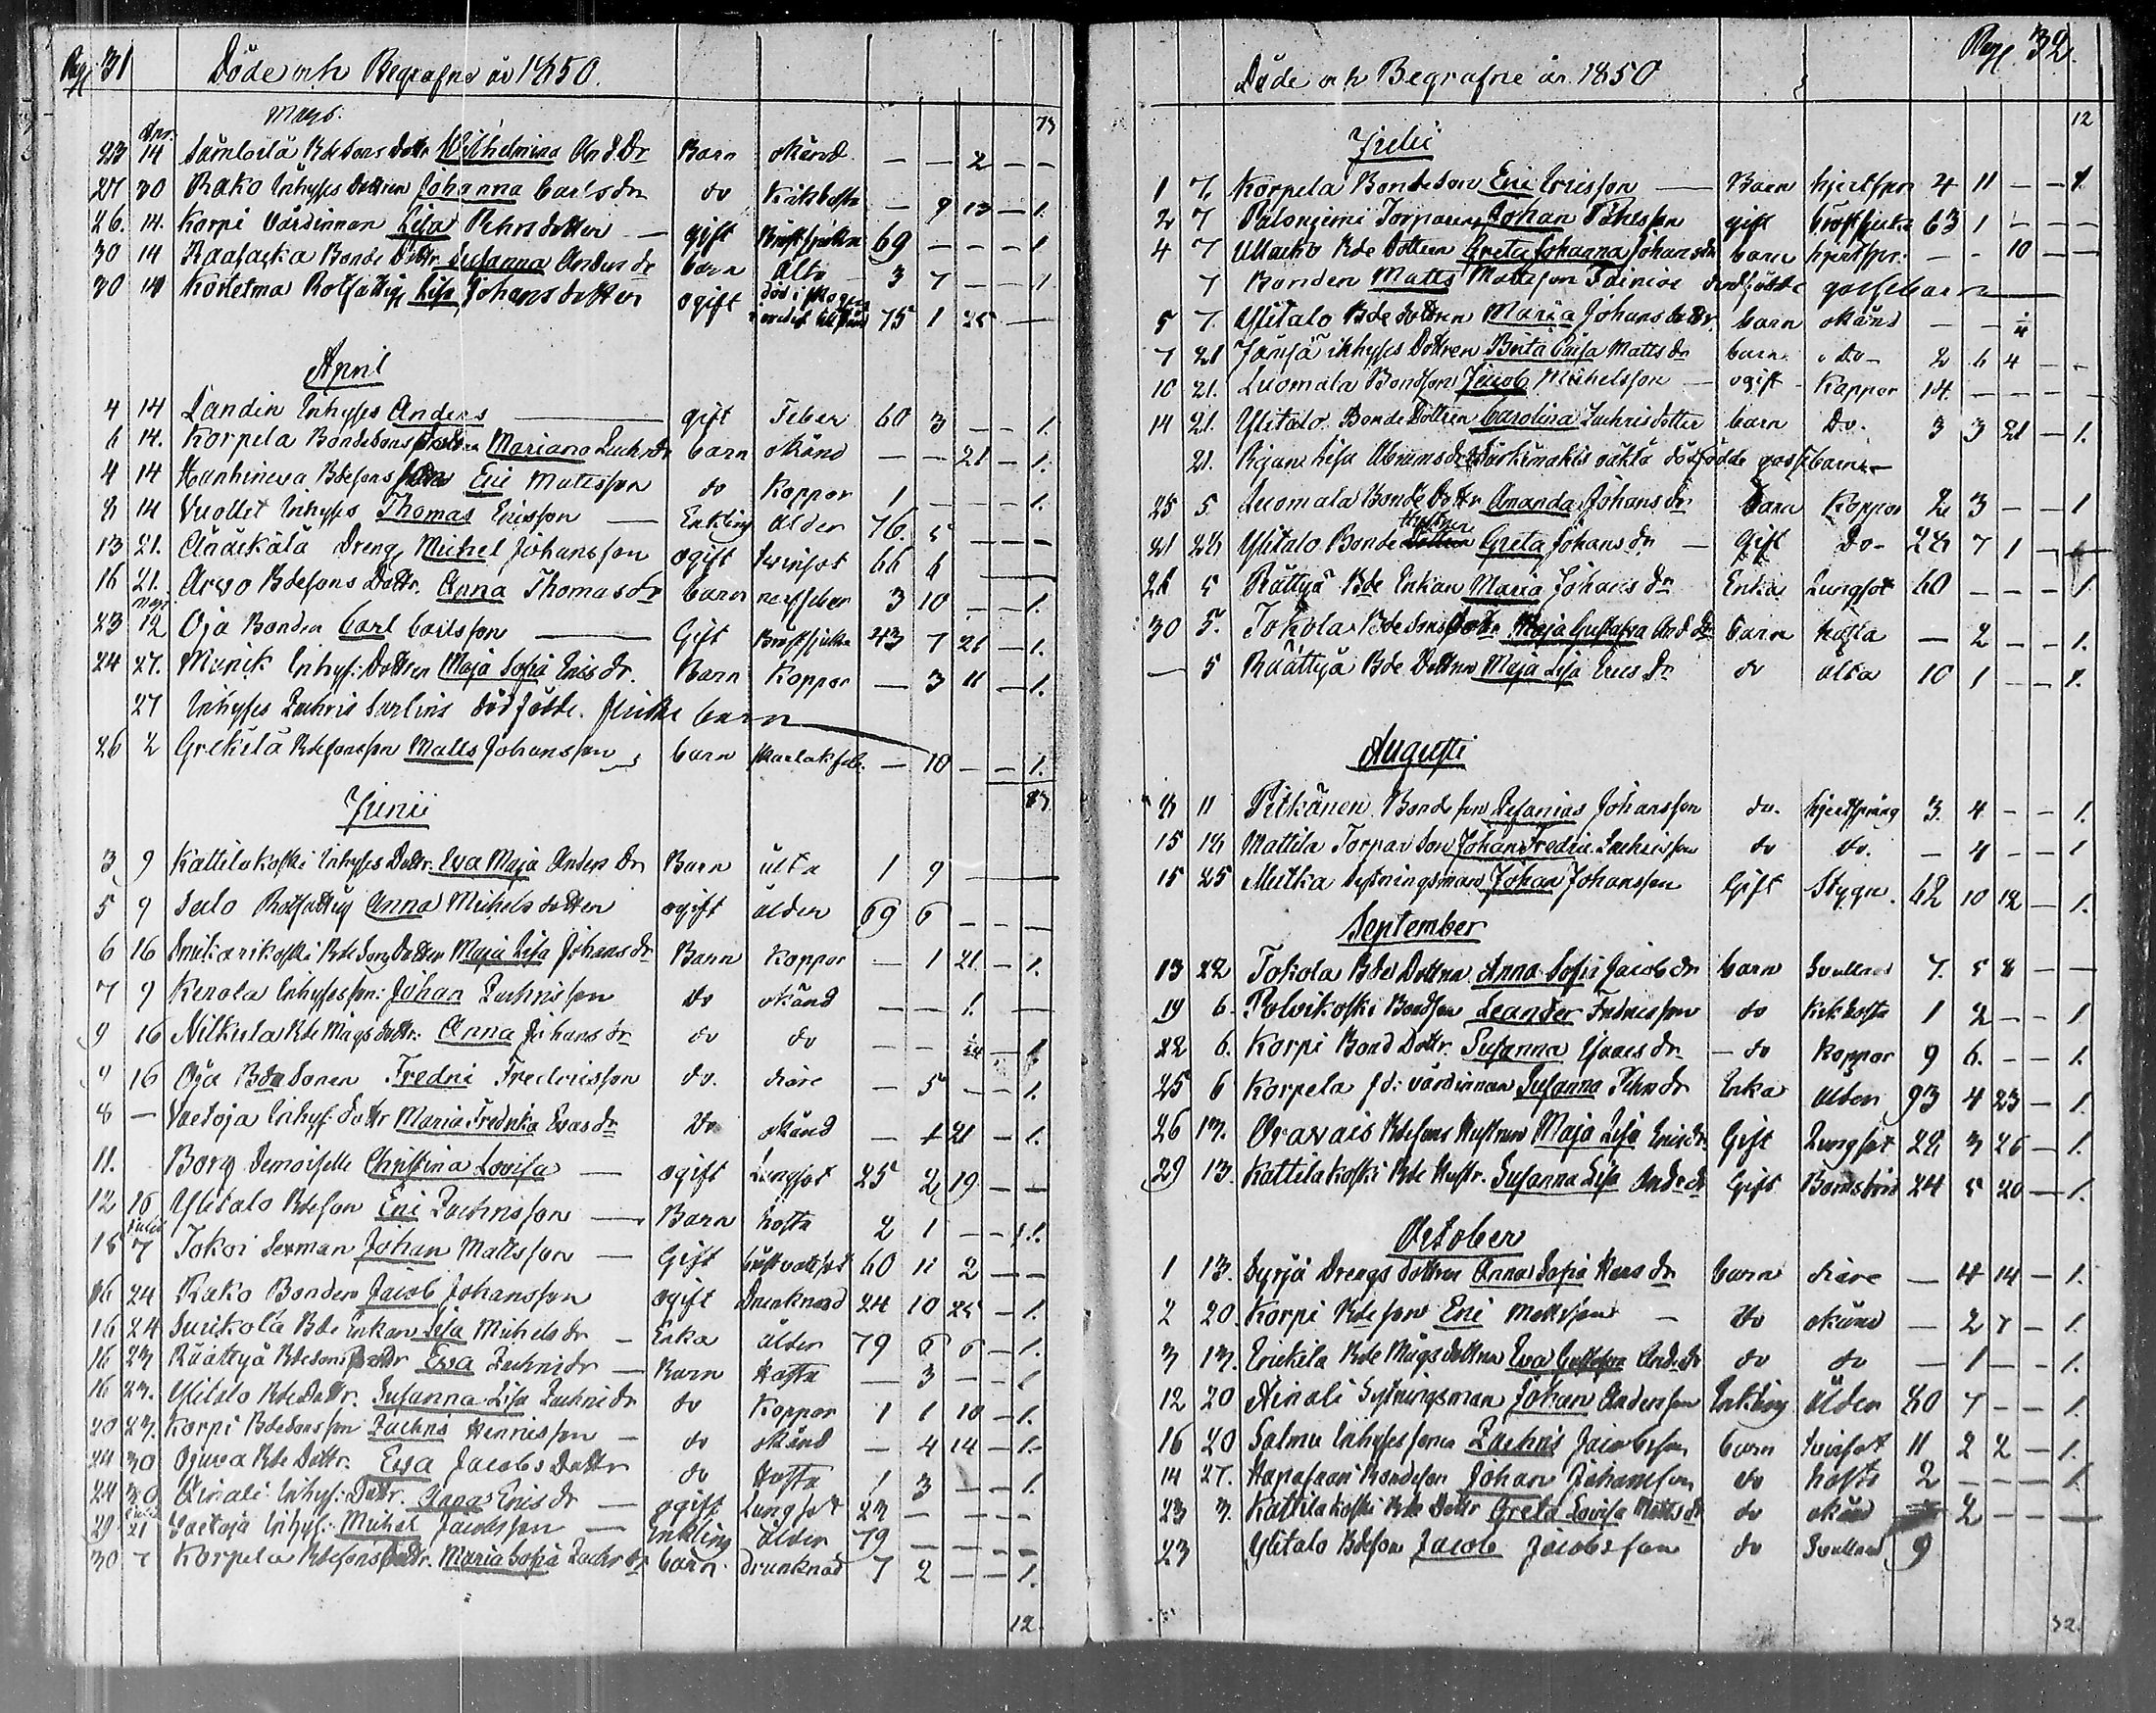 Pag 31
Döde och Begrafne år 1850.
Mars.
73
23 Apr. 14 Bdesons Dottr Wilhelmina And. Dr Barn okänd — — 2 — —
27 30 Rako Inhyses Dottren Johanna Carls dr do Kikhosta — 9 13 — 1.
26. 14. Korpi värdinnan Lisa Pehrs dotter — gift Bröstsjukdom 69 — — — 1
30 14 Raasacka Bonde Dottr. Susanna Anders dr barn älta 3 7 — — 1
30 14 Rotfattig Lisa Johans dotter ogift död i 75 1 25 —
April
4 14 Landin Inhyses Anders — gift Feber 60 3 — — 1.
6 14. Korpela Bondesons Dottren Mariana Zachr. dr barn okänd — — 21 — 1.
4 14 Hanhineva Bdesons Son Eric Mattsson do Koppor 1 — — — 1.
8 14 Vuollet Inhyses Thomas Ericsson — Enkling ålder 76. 5 — — —
13 21. Äänekälä Dreng Michel Johansson ogift Tvinsot 66 6 — —
16 21. Arvo Bdesons Dottr. Anna Thomas dr barn nerffeber 3 10 — — 1.
23 maji 12 Oja Bonden Carl Carlsson — Gift Bröstsjukdom 43 7 21 — 1.
24 27. Minik Inhys: Dottren Maja Sofia Erics dr. Barn Koppor — 3 11 — 1.
27 Inhyses Zachris Surlins dödfödde flicke barn —
26 2 Grekilä Bdesonsson Matts Johansson barn skarlaksfeb. — 10 — — 1.
Junii
3 9 Kattilakoski Inhyses Dottr. Eva Maja Anders Dr Barn älta 1 9 — —
5 9 Salo Rotfattig Anna Michels dotter ogift ålder 69 6 — — —
6 16 Bdesons Dotter Maja Lisa Johans dr Barn Koppor — 1 21 — 1.
7 9 Kerola Inhysesson: Johan Zachrisson do okänd — — 1. —
9 16 Nikula Bde Mågs dottr. Anna Johans dr do do — — — 1
9 16 Oja Bdesonen Fredric Fredricsson do. diare — 5 — — 1.
8 — Vaetoja Inhys: Dottr Maria Fredrika Evas dr do okänd — 1 21 — 1.
11. Borg Demoiselle Christina Lovisa — ogift Lungsot 25 2 19 — —
12 16 Ylitalo Bdeson Eric Zachrisson — Barn hosta 2 1 — — 1.
15 julii 7 Tokoi Sexman Johan Mattsson — Gift bröstvattsot 60 11 2 — —
16 24 Kako Bonden Jacob Johansson ogift Drunknad 24 10 25 — 1.
16 24 Surikola Bde Enkan Lisa Michels dr — Enka ålder 79 6 6 — 1.
16 23 Räättyä Bdesons Dottr Eva Zachris dr — Barn Hosta — 3 — — 1
16 23. Ylitalo Bde Dottr. Susanna Lisa Zachris dr do Koppor 1 1 10 — 1.
20 23. Korpi Bdesonsson Zachris Henricsson — do okänd — 4 14 — 1.
24 30 Ojuva Bde Dottr. Eva Jacobs Dottr do Hosta 1 3 — — 1.
24 30 Ainali Inhys: Dottr. Anna Erics dr — ogift Lungsot 23 — — — —
29 21 Vaetoja Inhys: Michel Jacobsson — Enkling ålder 79 — — — —
30 7 Korpela Bdesons Dottr. Maria Sofia Zachr dr barn drunknad 7 2 — — 1.
12.
Pag 32.
Döde och Begrafne år 1850
12
Julii
1 7. Korpela Bondeson Eric Ericsson — Barn hjertspr 4 11 — — 1.
2 7 Palonjemi Torparen Johan Påhlsson gift bröstsjukd 63 1 — — —
4 7 Ullacko Bde Dottren Greta Johanna Johans dr barn hjertspr. — — 10 — —
7 Bonden Matts Mattsson Tainios dödfödde gossebarn —
5 7. Ylitalo Bde dottren Maria Johans dottr. barn okänd — —
7 21 Jämsä inhyses Dottren Brita Caisa Matts dr barn do 2 6 4 — —
10 21. Luomala Bondeson Jacob Michelsson — ogift Koppor 14. — — — —
14 21. Ylitalo Bonde Dottren Carolina Zachris dotter barn Do. 3 3 21 — 1.
21. Pigan Lisa Abrams drs oäkta dödfödde gossebarn —
25 5 Luomala Bonde Dottr Amanda Johans dr barn Koppor 2 3 — — 1
21 28 Ylitalo Bonde Hustrun Greta Johans dr — Gift Do 28 7 1 —
28 5 Rättyä Bde Enkan Maria Johans dr Enka Lungsot 60 — — — 1
30 5. Tokola Bdesons Dottr Maja Gustafva And. dr barn hosta — 2 — — 1.
— 5 Räättyä Bde Dottren Maja Lisa Erics dr do älta 10 1 — — 1.
Augusti
8 11 Pitkänen Bondeson Zefanias Johansson do. hjertspräng 3 4 — — 1.
15 18 Mattila Torpar Son Johan Fredric Zachrisson do do. — 4 — — 1
15 25 Mutka Sytningsman Johan Johansson Gift Stygn. 62 10 12 — 1.
September
13 22 Tokola Bde Dottren Anna Sofia Jacobs dr barn Svullnad 7. 5 8 — —
19 6. Polvikoski Bondson Leander Fredricsson do Kikhosta 1 2 — — 1
22 6. Korpi Bond Dottr. Susanna Isaacs dr — do Koppor 9 6. — — 1.
25 6 Korpela f.d. värdinnan Susanna Pehrs dr Enka Ålder 93 4 23 — 1.
26 13. Oravais Bdesons Hustrun Maja Lisa Erics dr Gift Lungsot 28 3 26 — 1.
29 13. Kattilakoski Bde Hustr. Susanna Lisa And. dr Gift Barnsbörd 24 5 20 — 1.
October
1 13. Syrjä Drengs dottren Anna Sofia Hans dr barn diare — 4 14 — 1.
2 20. Korpi Bdeson Eric Mattsson — do okänd — 2 7 — 1.
3 13. Erickila Bde Mågs dottren Eva Gustafva And. dr do do — 1 — — 1.
12 20 Ainali Sytningsman Johan Andersson Enkling Ålder 80 7 — — 1.
16 20 Salmu Inhyses sonen Zachris Jacobsson barn Tvinsot 11 2 2 — 1.
14 27. Hapasaari Bondeson Johan Johansson do hosta 2 — — — 1.
23 3. Kattilakoski Bde Dottr Greta Lovisa Matts dr do okänd 2 — — —
23 Ylitalo Bdeson Jacob Jacobsson do Svullnad 9
32.